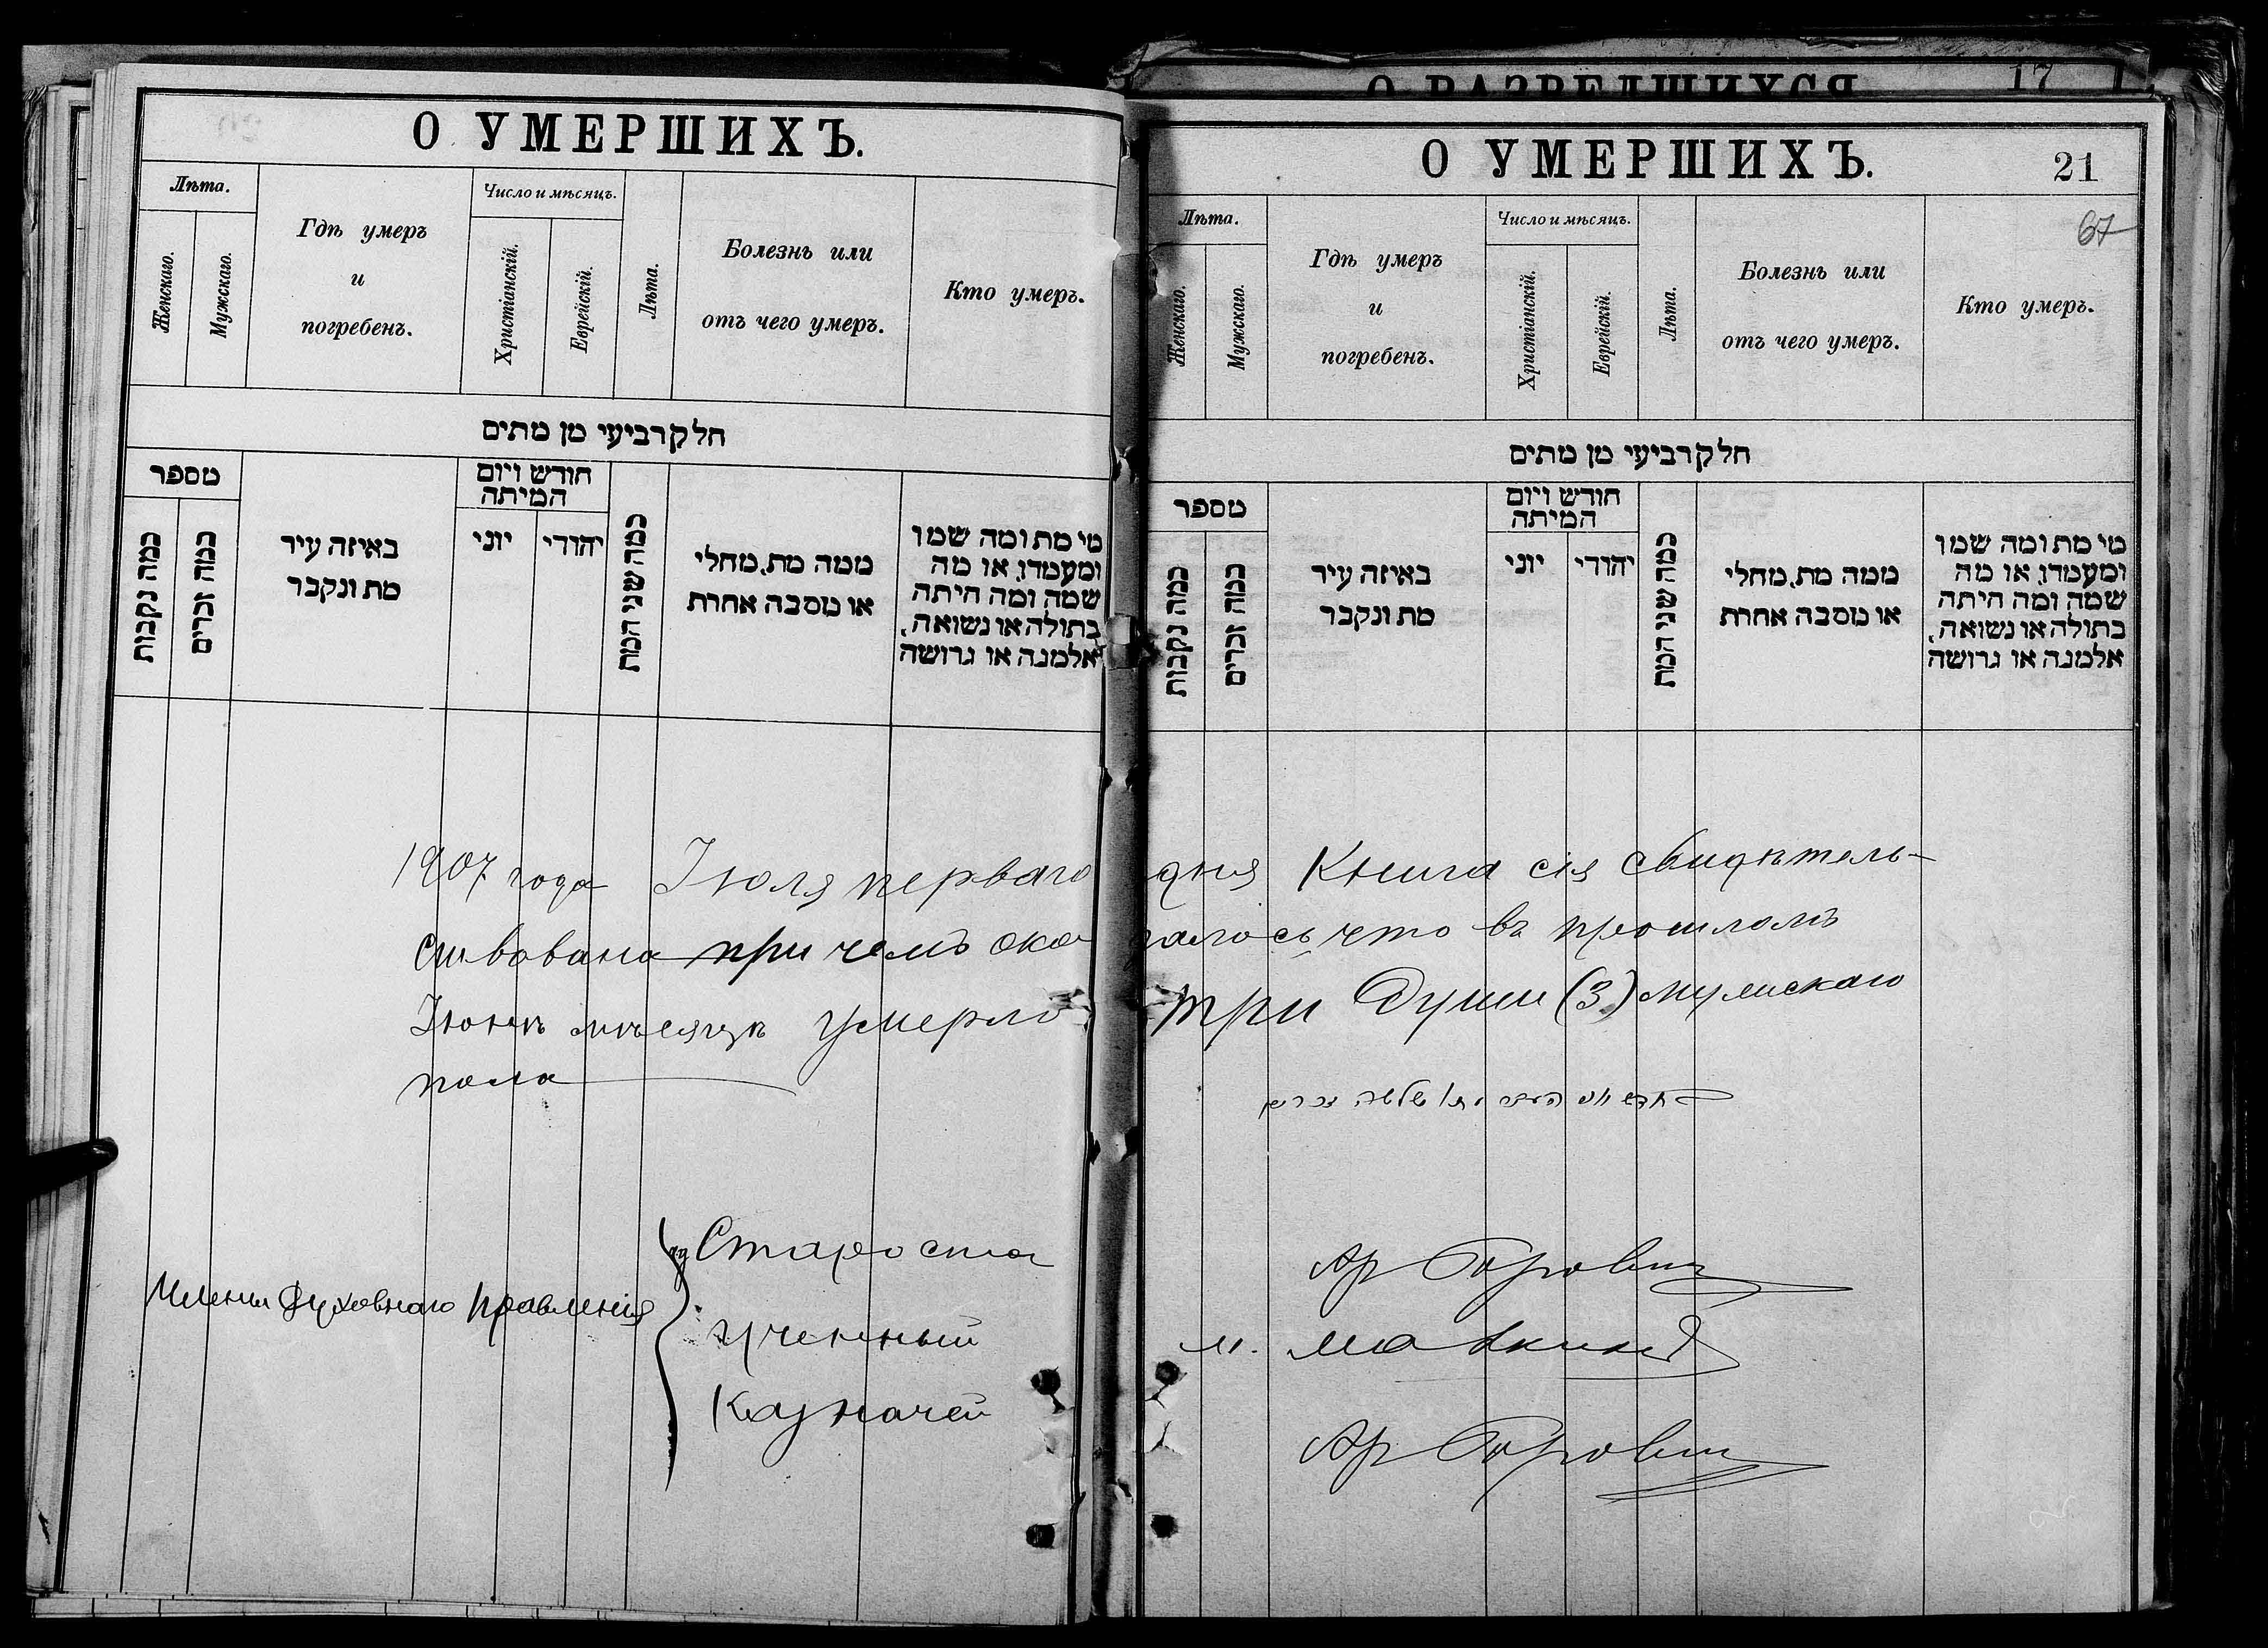 О РАЗВЕДШИХСЯ 17
О УМЕРШИХЪ.
Лѣта.
Женскаго.
Мужскаго.
Гдѣ умеръ
и
погребенъ.
Число и мѣсяцъ.
Христіанскій.
Еврейскій.
Лѣта.
Болезнь или
отъ чего умеръ.
Кто умеръ.
חלק רביעי מן מתים
מספר
כמה נקבות
כמה זכרים
באיזה עיר
מת ונקבר
חודש ויום
המיתה
יוני
יהודי
כמה שני המת
ממה מת, מחלי
או מסבה אחרת
מי מת ומה שמו
ומעמדו, או מה
שמה ומה היתה
בתולה או נשואה,
אלמנה או גרושה
О УМЕРШИХЪ. 21
67
Лѣта.
Женскаго.
Мужскаго.
Гдѣ умеръ
и
погребенъ.
Число и мѣсяцъ.
Христіанскій.
Еврейскій.
Лѣта.
Болезнь или
отъ чего умеръ.
Кто умеръ.
חלק רביעי מן מתים
מספר
כמה נקבות
כמה זכרים
באיזה עיר
מת ונקבר
חודש ויום
המיתה
יוני
יהודי
כמה שני המת
ממה מת, מחלי
או מסבה אחרת
מי מת ומה שמו
ומעמדו, או מה
שמה ומה היתה
בתולה או נשואה,
אלמנה או גרושה
1907 года Іюля перваго дня Книга сія свидѣтель-
ствована при чемъ оказалось что въ прошломъ
Іюнѣ мѣсяцѣ умерло три души (3) мужскаго
пола
שלשה זכרים
Члены Духовнаго Правленія
Староста
Ученный
Казначей